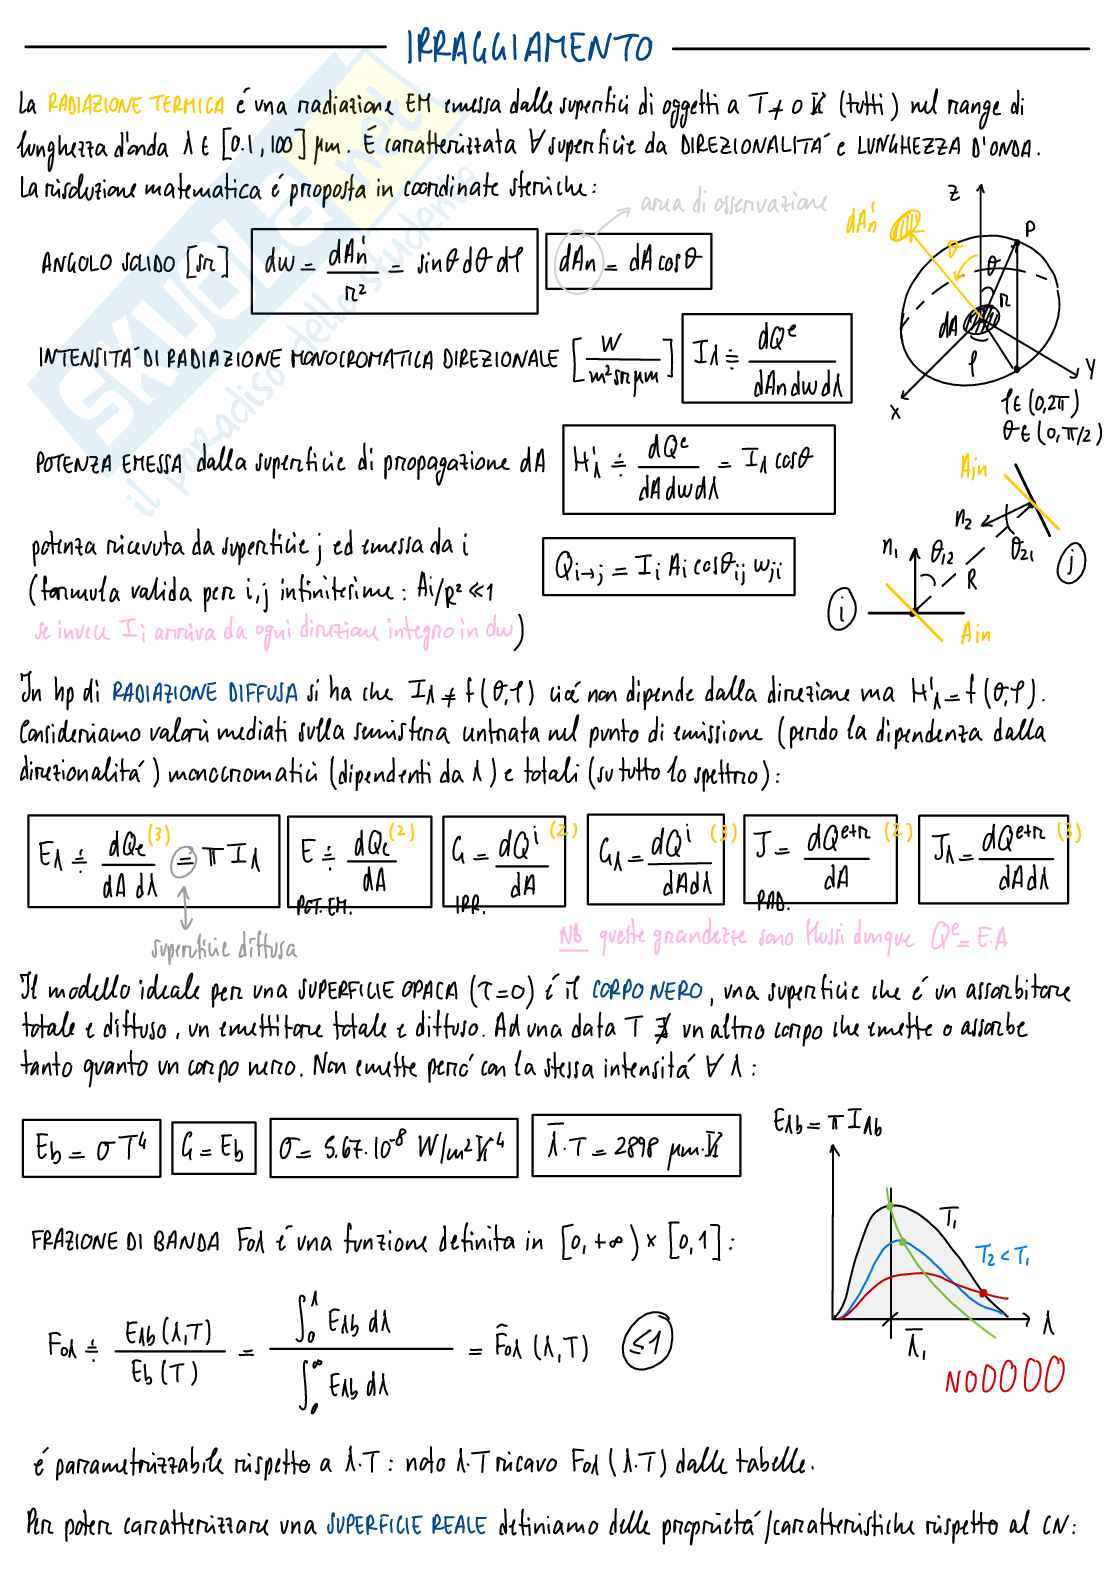 IRRAGGIAMENTO
La RADIAZIONE TERMICA é una radiazione EM emessa dalle superfici di oggetti a T ≠ 0 K (tutti) nel range di
lunghezza d'onda λ ∈ [0.1, 100] μm. É caratterizzata ∀ superficie da DIREZIONALITÁ e LUNGHEZZA D'ONDA.
La risoluzione matematica é proposta in coordinate sferiche:
area di osservazione
ANGOLO SOLIDO [sr] dω = dAn'/r² = sinθ dθ dφ dAn = dA cosθ
INTENSITÁ DI RADIAZIONE MONOCROMATICA DIREZIONALE [W/m² sr μm] Iλ ≐ dQᵉ/dAn dω dλ
z dAn' P θ θ r dA φ x y
φ ∈ (0, 2π)
θ ∈ (0, π/2)
POTENZA EMESSA dalla superficie di propagazione dA H'λ ≐ dQᵉ/dA dω dλ = Iλ cosθ
potenza ricevuta da superficie j ed emessa da i Qi→j = Ii Ai cosθij ωji
(formula valida per i,j infinitesime: Ai/R² ≪ 1
se invece Ii arriva da ogni direzione integro in dω)
Ajn n2 n1 θ12 θ21 R j i Ain
In hp di RADIAZIONE DIFFUSA si ha che Iλ ≠ f(θ,φ) cioé non dipende dalla direzione ma H'λ = f(θ,φ).
Consideriamo valori mediati sulla semisfera centrata nel punto di emissione (perdo la dipendenza dalla
direzionalitá) monocromatici (dipendenti da λ) e totali (su tutto lo spettro):
Eλ ≐ dQe⁽³⁾/dA dλ = π Iλ
E ≐ dQe⁽²⁾/dA POT. EM.
G = dQⁱ⁽²⁾/dA IRR.
Gλ = dQⁱ⁽³⁾/dA dλ
J = dQᵉ⁺ʳ⁽²⁾/dA RAD.
Jλ = dQᵉ⁺ʳ⁽³⁾/dA dλ
superficie diffusa
NB queste grandezze sono flussi dunque Qᵉ = E·A
Il modello ideale per una SUPERFICIE OPACA (τ=0) é il CORPO NERO, una superficie che é un assorbitore
totale e diffuso, un emettitore totale e diffuso. Ad una data T ∄ un altro corpo che emette o assorbe
tanto quanto un corpo nero. Non emette peró con la stessa intensitá ∀ λ:
Eb = σT⁴ G = Eb σ = 5.67·10⁻⁸ W/m²K⁴ λ̄·T = 2898 μm·K
Eλb = π Iλb
T1
T2 < T1
λ
λ̄1
NOOOOO
FRAZIONE DI BANDA F0λ é una funzione definita in [0, +∞) × [0, 1]:
F0λ ≐ Eλb(λ,T)/Eb(T) = ∫₀^λ Eλb dλ / ∫₀^∞ Eλb dλ = F̂0λ (λ,T) ≤1
é parametrizzabile rispetto a λ·T: noto λ·T ricavo F0λ(λ·T) dalle tabelle.
Per poter caratterizzare una SUPERFICIE REALE definiamo delle proprietá/caratteristiche rispetto al CN:
SKUOLA.net
il paradiso dello studente